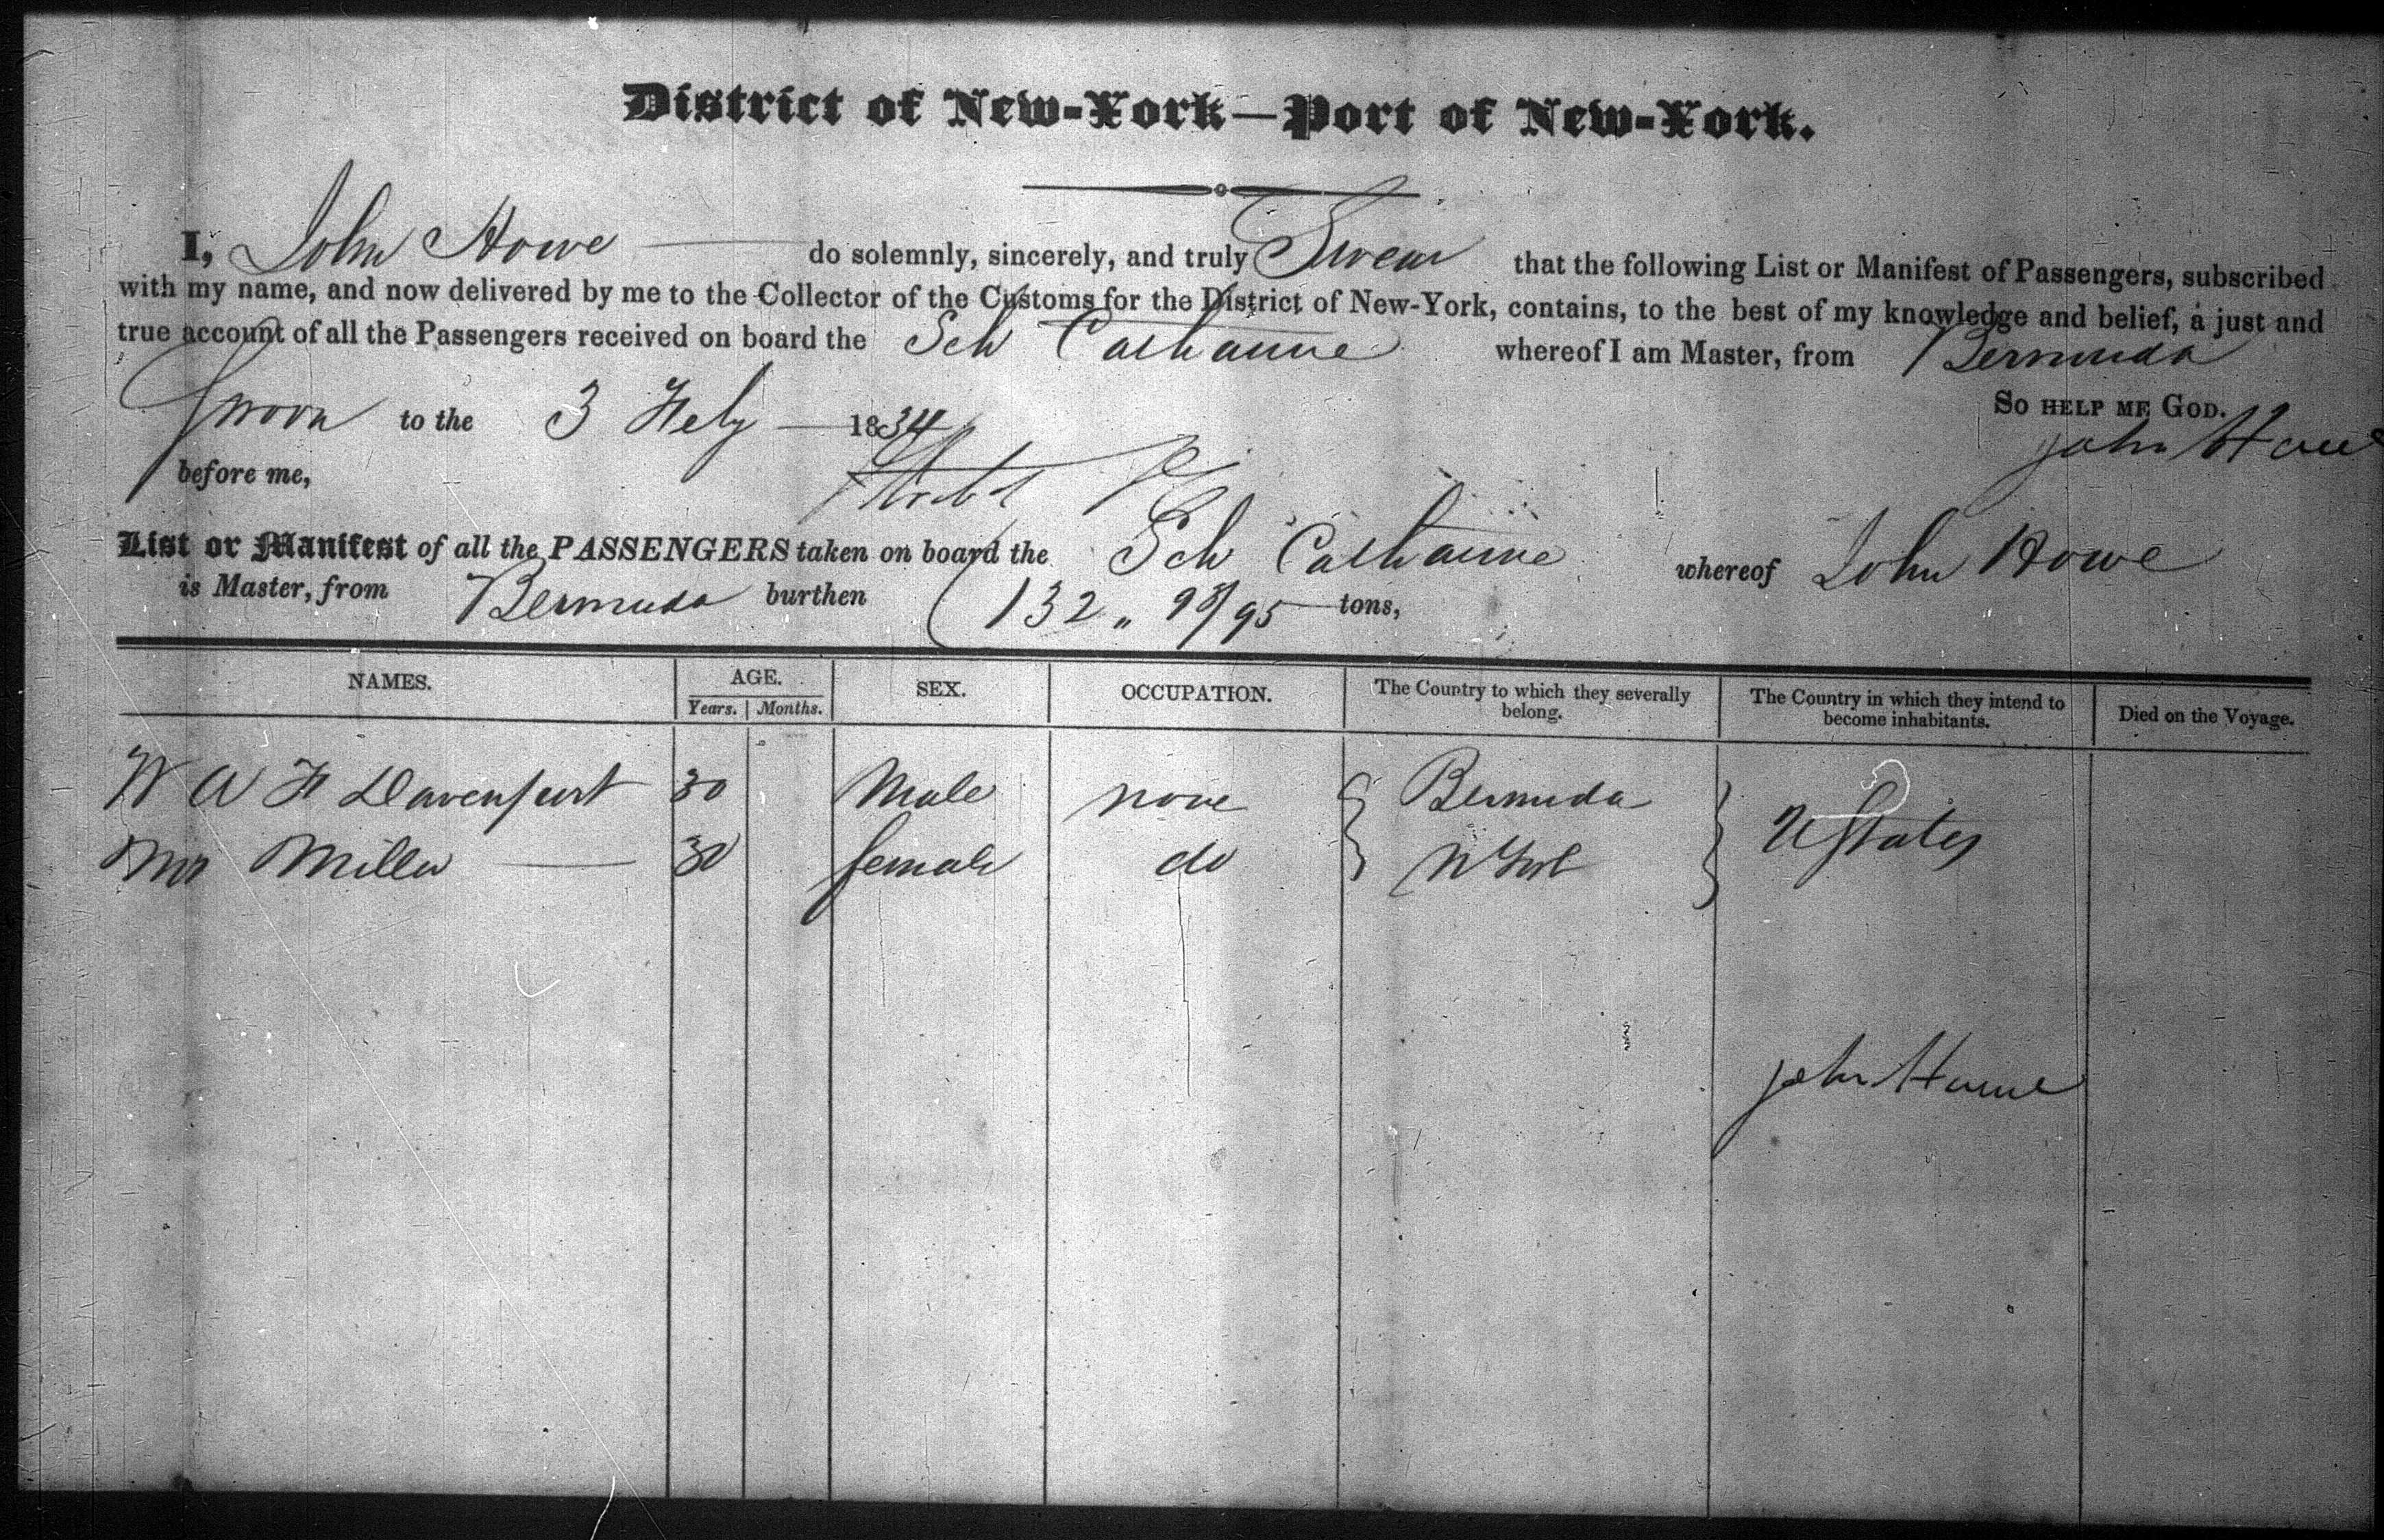 District of New-York—Port of New-York.
I, John Howe do solemnly, sincerely, and truly Swear that the following List or Manifest of Passengers, subscribed
with my name, and now delivered by me to the Collector of the Customs for the District of New-York, contains, to the best of my knowledge and belief, a just and
true account of all the Passengers received on board the Sch Catharine whereof I am Master, from Bermuda
So HELP ME GOD.
Sworn to the 3 Feby 1834
John Howe
before me,
List or Manifest of all the PASSENGERS taken on board the Sch Catharine whereof John Howe
is Master, from Bermuda burthen 132 " 93/95 tons,
NAMES. AGE. SEX. OCCUPATION. The Country to which they severally belong. The Country in which they intend to become inhabitants. Died on the Voyage.
Years. Months.
W A F Davenport 30 Male none Bermuda U States
Mrs Miller 30 female do N York
John Howe